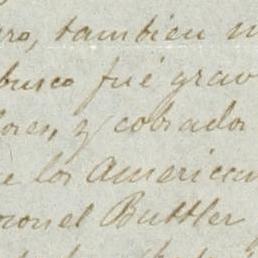 ro, tambien
busco fué grav
lores, y cobrador
e los American
oronel Buttler